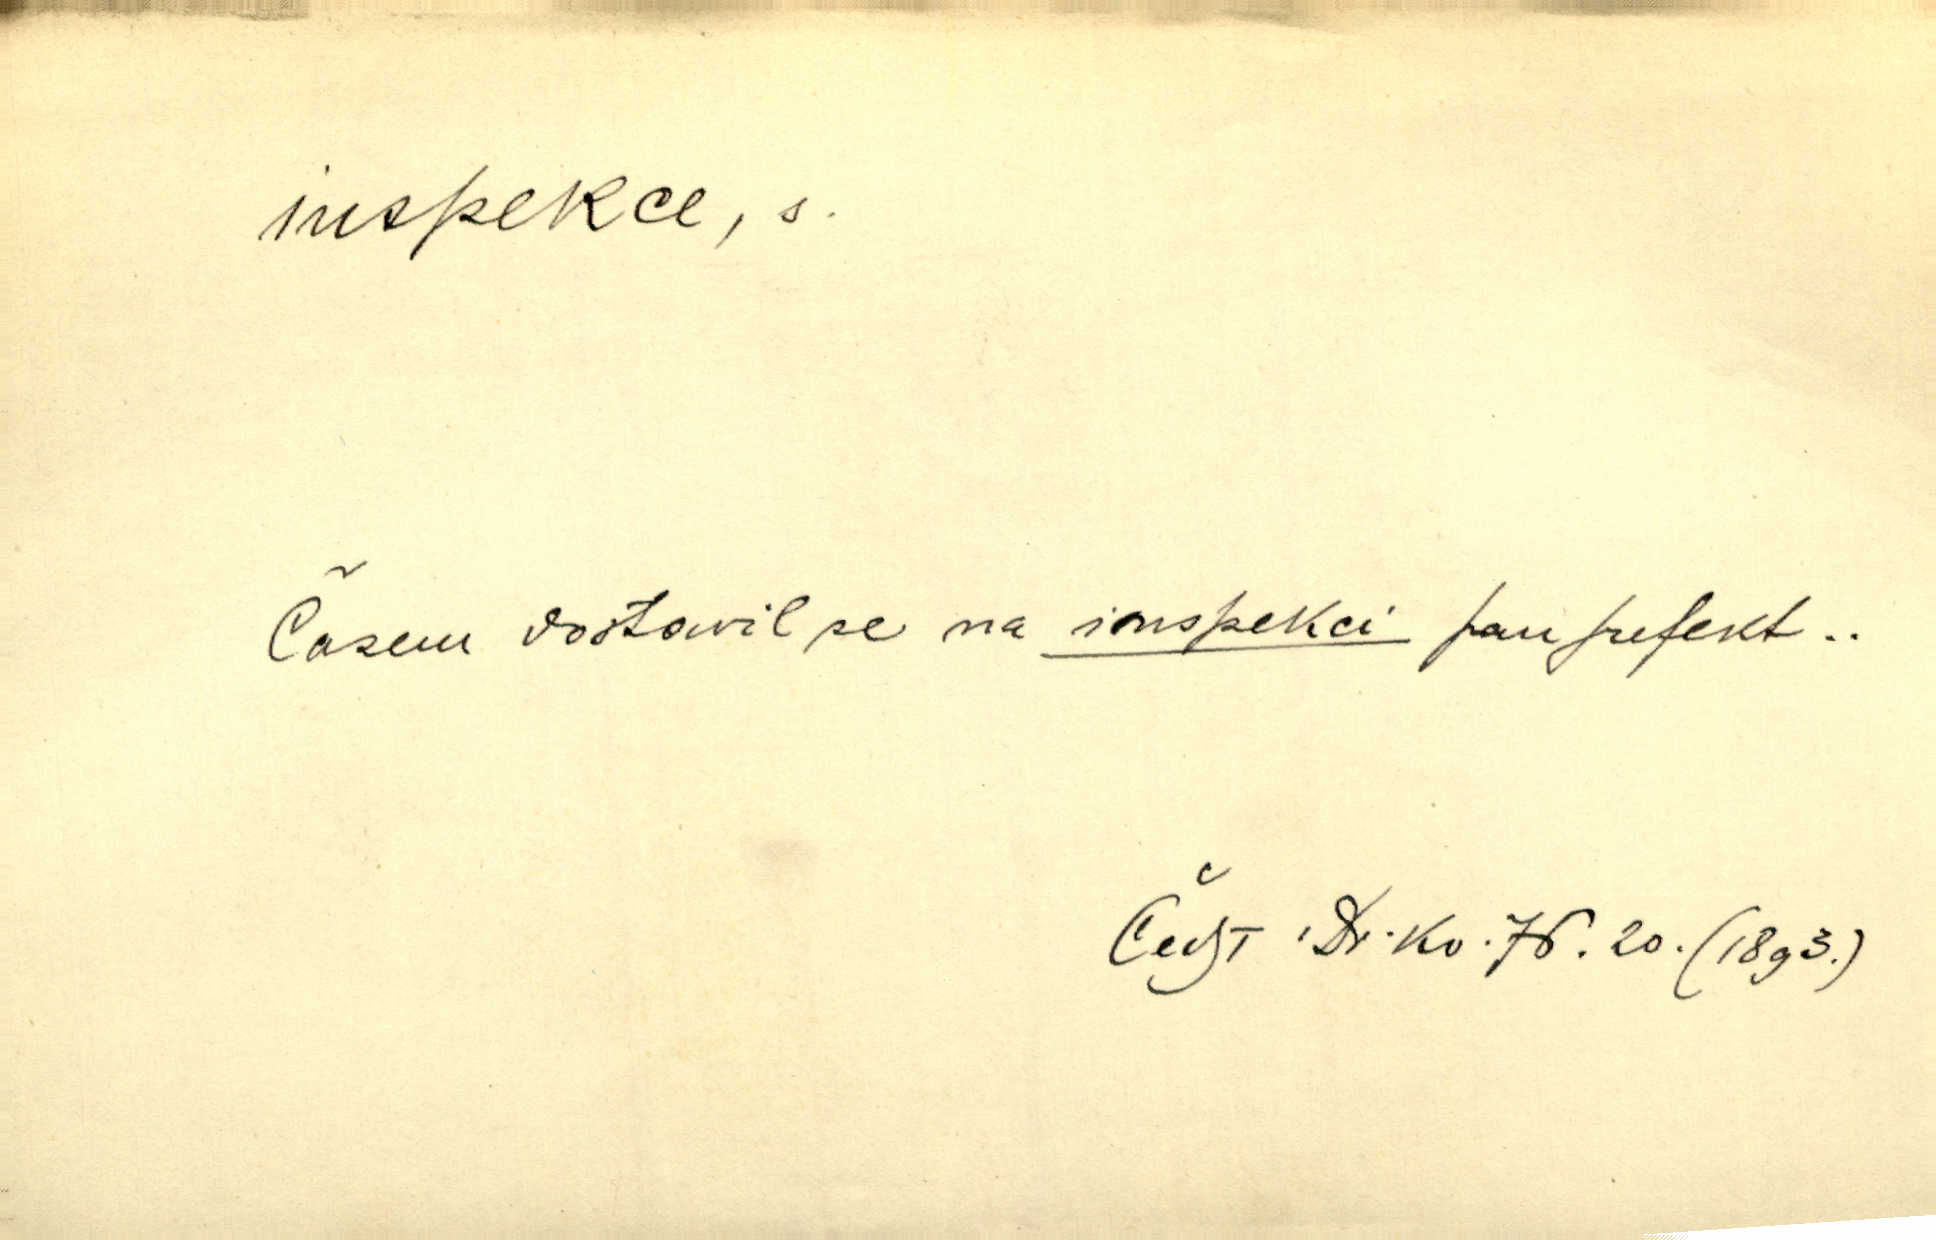 inspekce, s.
Časem dostavil se na inspekci pan prefekt ..
Dr. Ko. 76. 20. (1893.)